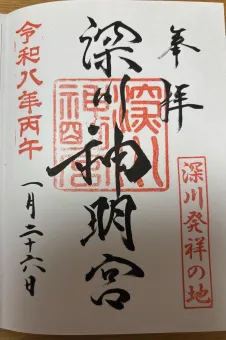 奉拝
深川発祥の地
深川神明宮
令和八年丙午
一月二十六日